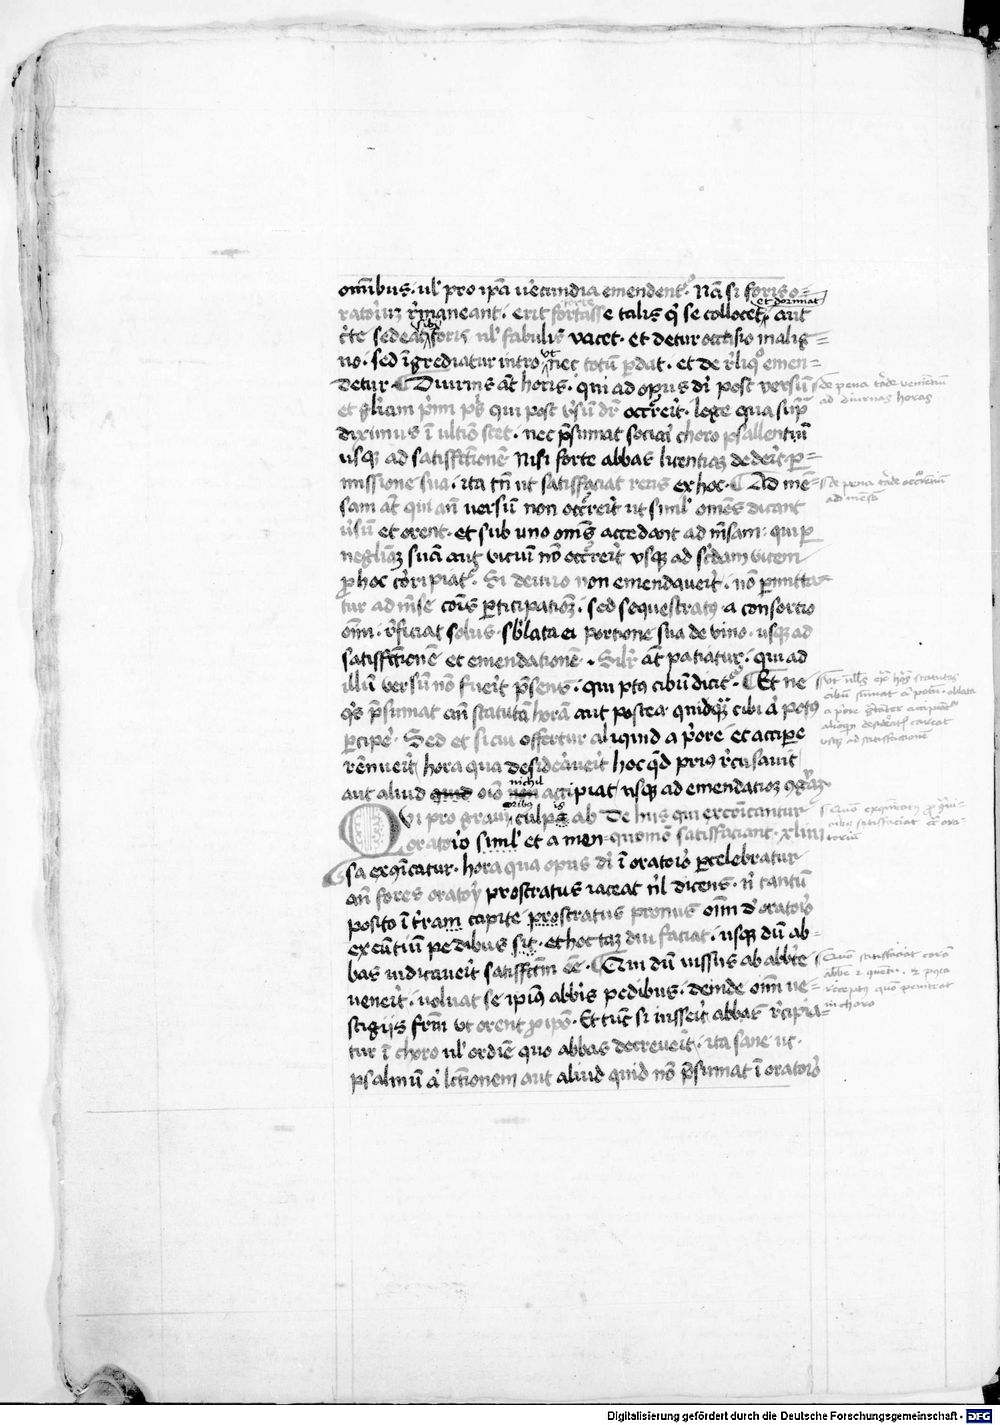 omībus · ul' pro ipā ūecundia emendent᷑. Nā si foris o=
ratoriuꝫ r̄maneant · erit fortasse talis q̄ se collocet et dormiat aut
c̄te sedeat sibi foris ul' fabulis vacet · et detur occasio malig=
no · sed īgrediatur intro ut nec totū ꝑdat · et de r̄liqᷣo emen=
detur · Diurnis āt horis · qui ad opus dī post versū
et glīam p̄mi pſ̄ qui post ūsū dr̄ occr̄reīt · lege qua sup̄
diximus ī ultīo stet · nec p̄sumat sociaī choro psallentiū
usqꝫ ad satisfctōnē Nisi forte abbas licentiaꝫ dedeīt ꝑ=
missione sua · ita tn̄ ut satisfaciat reus ex hoc · Ad mē=
sam āt qui añ versū non occr̄reīt ut simul omēs dicant
ūsū et orent · et sub uno omēs accedant ad m̄sam · qui ꝑ
negligēciā suā aut vicium nō occr̄reīt vsqꝫ ad sc̄dam vicem
ꝓ hoc cōripiat᷑. Si denuo non emendaveīt · nō ꝑmitta=
tur ad m̄se cōis ꝑticipatiōꝫ · sed sequestratꝰ a consorcio
omī · r̄ficiat solus · sb̄lata ei portione sua de vino · usqꝫ ad
satisfctōnē et emendationē · Silr̄ āt patiatur · qui ad
illū versū nō fueīt p̄sens · qui ptꝰ cibū dicit᷑ · Et ne
qͥs p̄sumat añ statutā horā aut postea quidqᷓ cibi ā potꝰ
ꝑcipe · Sed et si cui offertur aliquid a p̄ore et accipe
rēnueīt hora qua desid̄aveīt hoc qd̄ priꝰ r̄cusavit
aut aliud quid oīo nichil non accipiat usqꝫ ad emendatioꝫ ꝯgͣꝫ
Qvi pro graui oribus culpa is ab De hiis qui excōicantur
oratorīo simul et a men= quomō satisfaciant · xliiii
sa exc̄icatur · hora qua opus dī ī oratorīo ꝑcelebratur
añ fores oratorij prostratus iaceat n̄l dicens · n̄ tantū
posito ī t̄ram capite prostratus pronus omī d' oratorīo
exeūtiū pedibus sit · et hoc tamdiu faciat · usqꝫ dū ab=
bas iudicaveīt satisfctm̄ eē · Qui dū iussus ab abbte
veneīt · uoluat se ipiꝰ abbīs pedibus · deinde omī ve=
stigiis fr̄m vt orent ꝓ ipō · Et tūc si iusseīt abbas r̄cipia=
tur ī choro ul' ordīe quo abbas decreveīt · ita sane ut ·
psalmū ā lctīonem aut aliud quid nō p̄sumat ī oratorīo
de pena tarde venientiū
ad diurnas horas
de pena tarde occr̄rentiū
ad mēsā
Vt nll's
cibū sumat ā potū
a p̄ore
alioqn̄ careat
usqꝫ ad satisfactionē
Quō ꝓ
satisfaciat
torium
Quō satisfaciat corā
abbe
r̄ceptꝰ quō
in choro
Digitalisierung gefördert durch die Deutsche Forschungsgemeinschaft - DFG